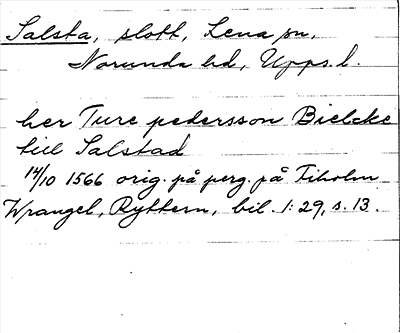 Salsta, slott, Lena sn,
Norunda hd, Upps. l.
her Ture pedersson Bielcke
till Salstad
14/10 1566 orig. på perg. på Tiholm
Wrangel, Ryttern, bil. 1:29, s. 13.